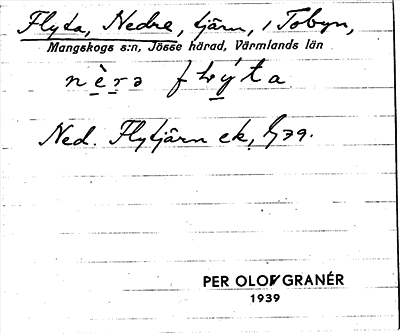 Flyta, Nedre, tjärn, i Tobyn,
Mangskogs s:n, Jösse härad, Värmlands län
Ned. Flytjärn ek,
PER OLOF GRANÉR
1939